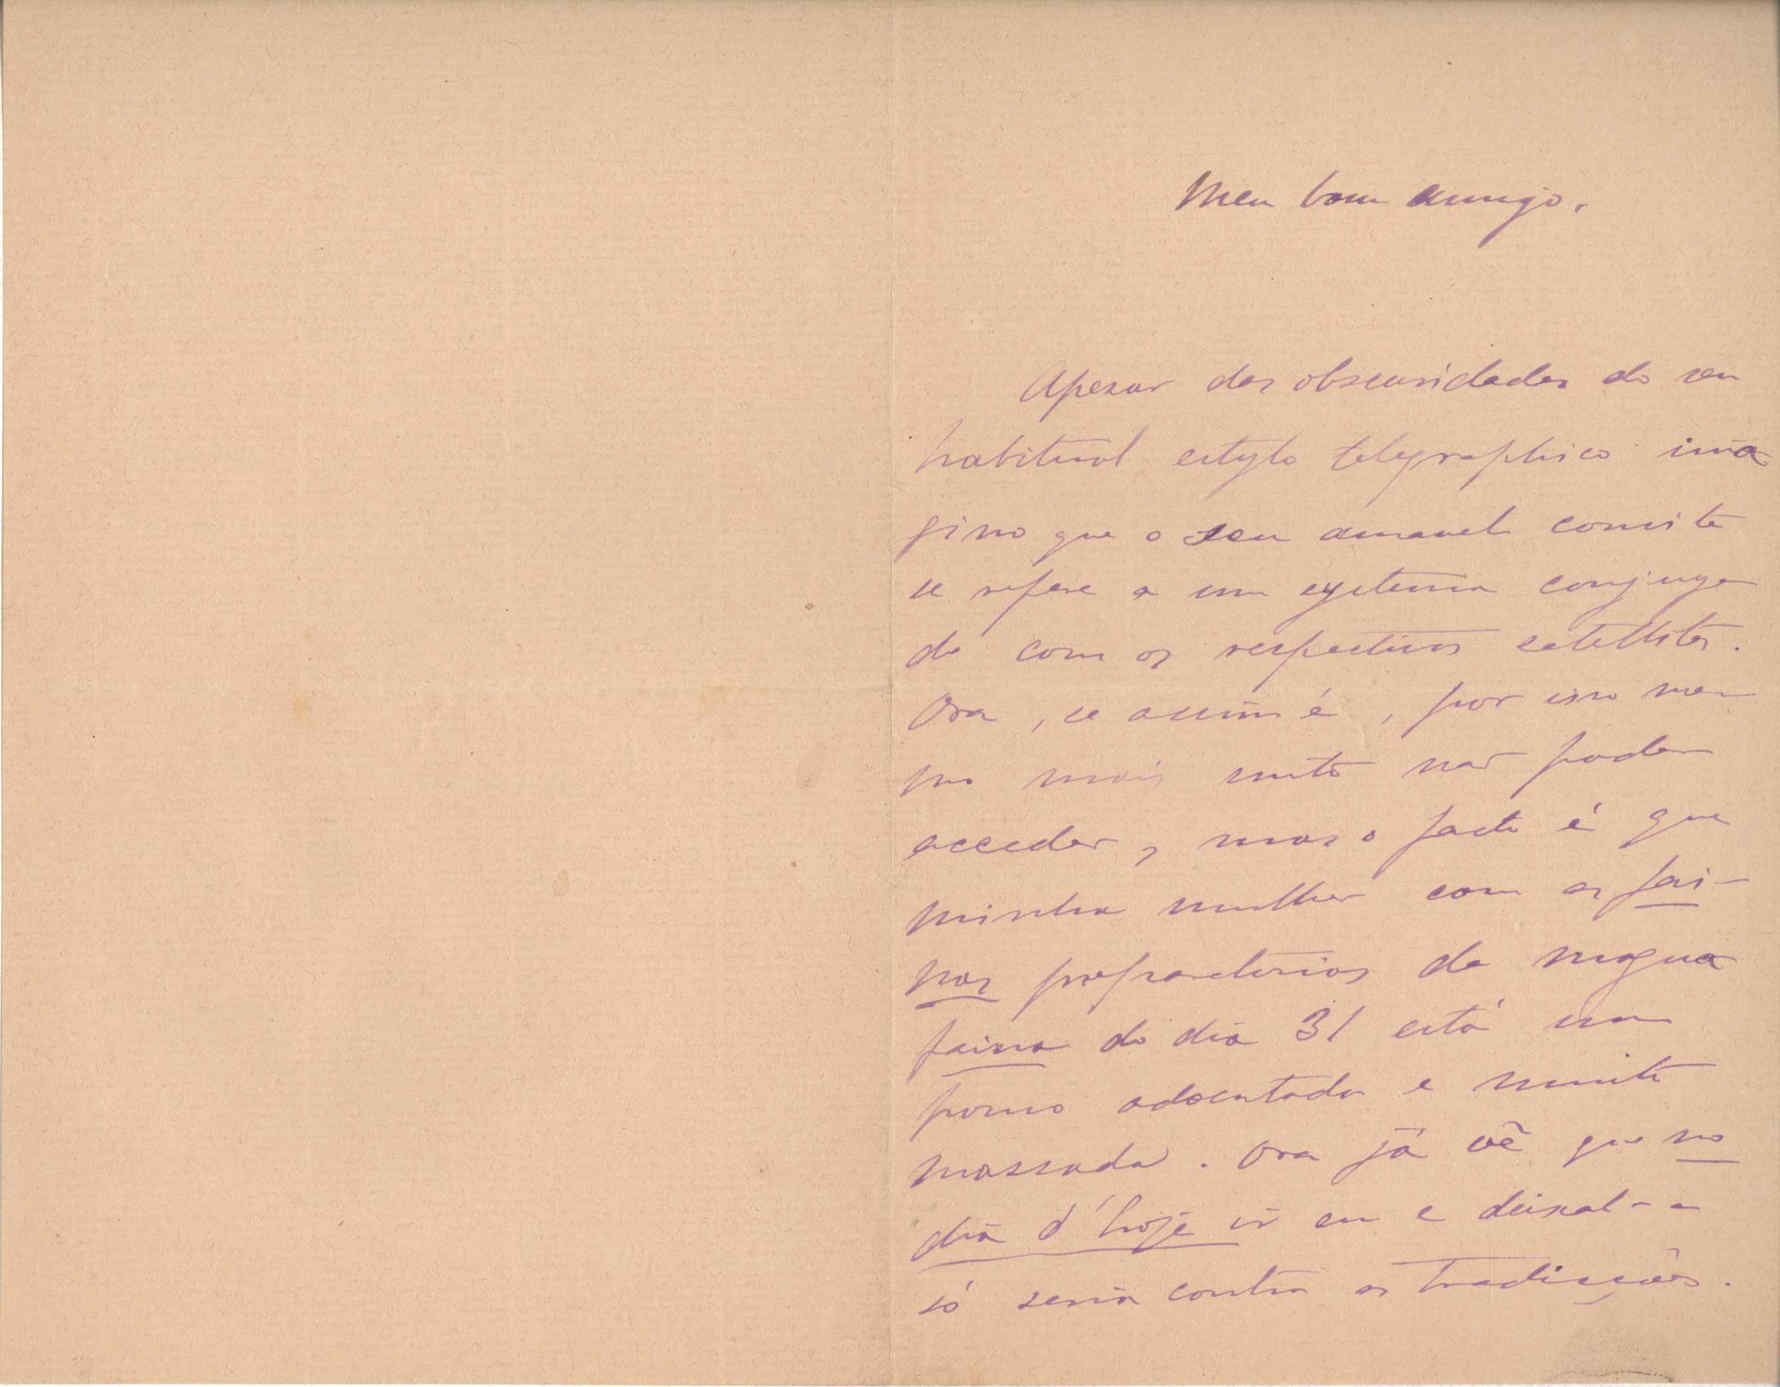 Meu bom amigo.
Apezar das obscuridades do seu
habitual estylo telegraphico ima
gino que o seu amavel convite
se refere a um systema conjuga
do com os respectivos satellites.
Ora, se assim é, por isso mesmo
mais sinto não poder
acceder, mas o facto é que
minha mulher com as fai-
nas preparatorias da magna
faina do dia 31 está um
pouco adoentada e muito
massada. Ora já vê que no
dia d'hoje ir eu e deixal-a
só seria contra as tradicções.